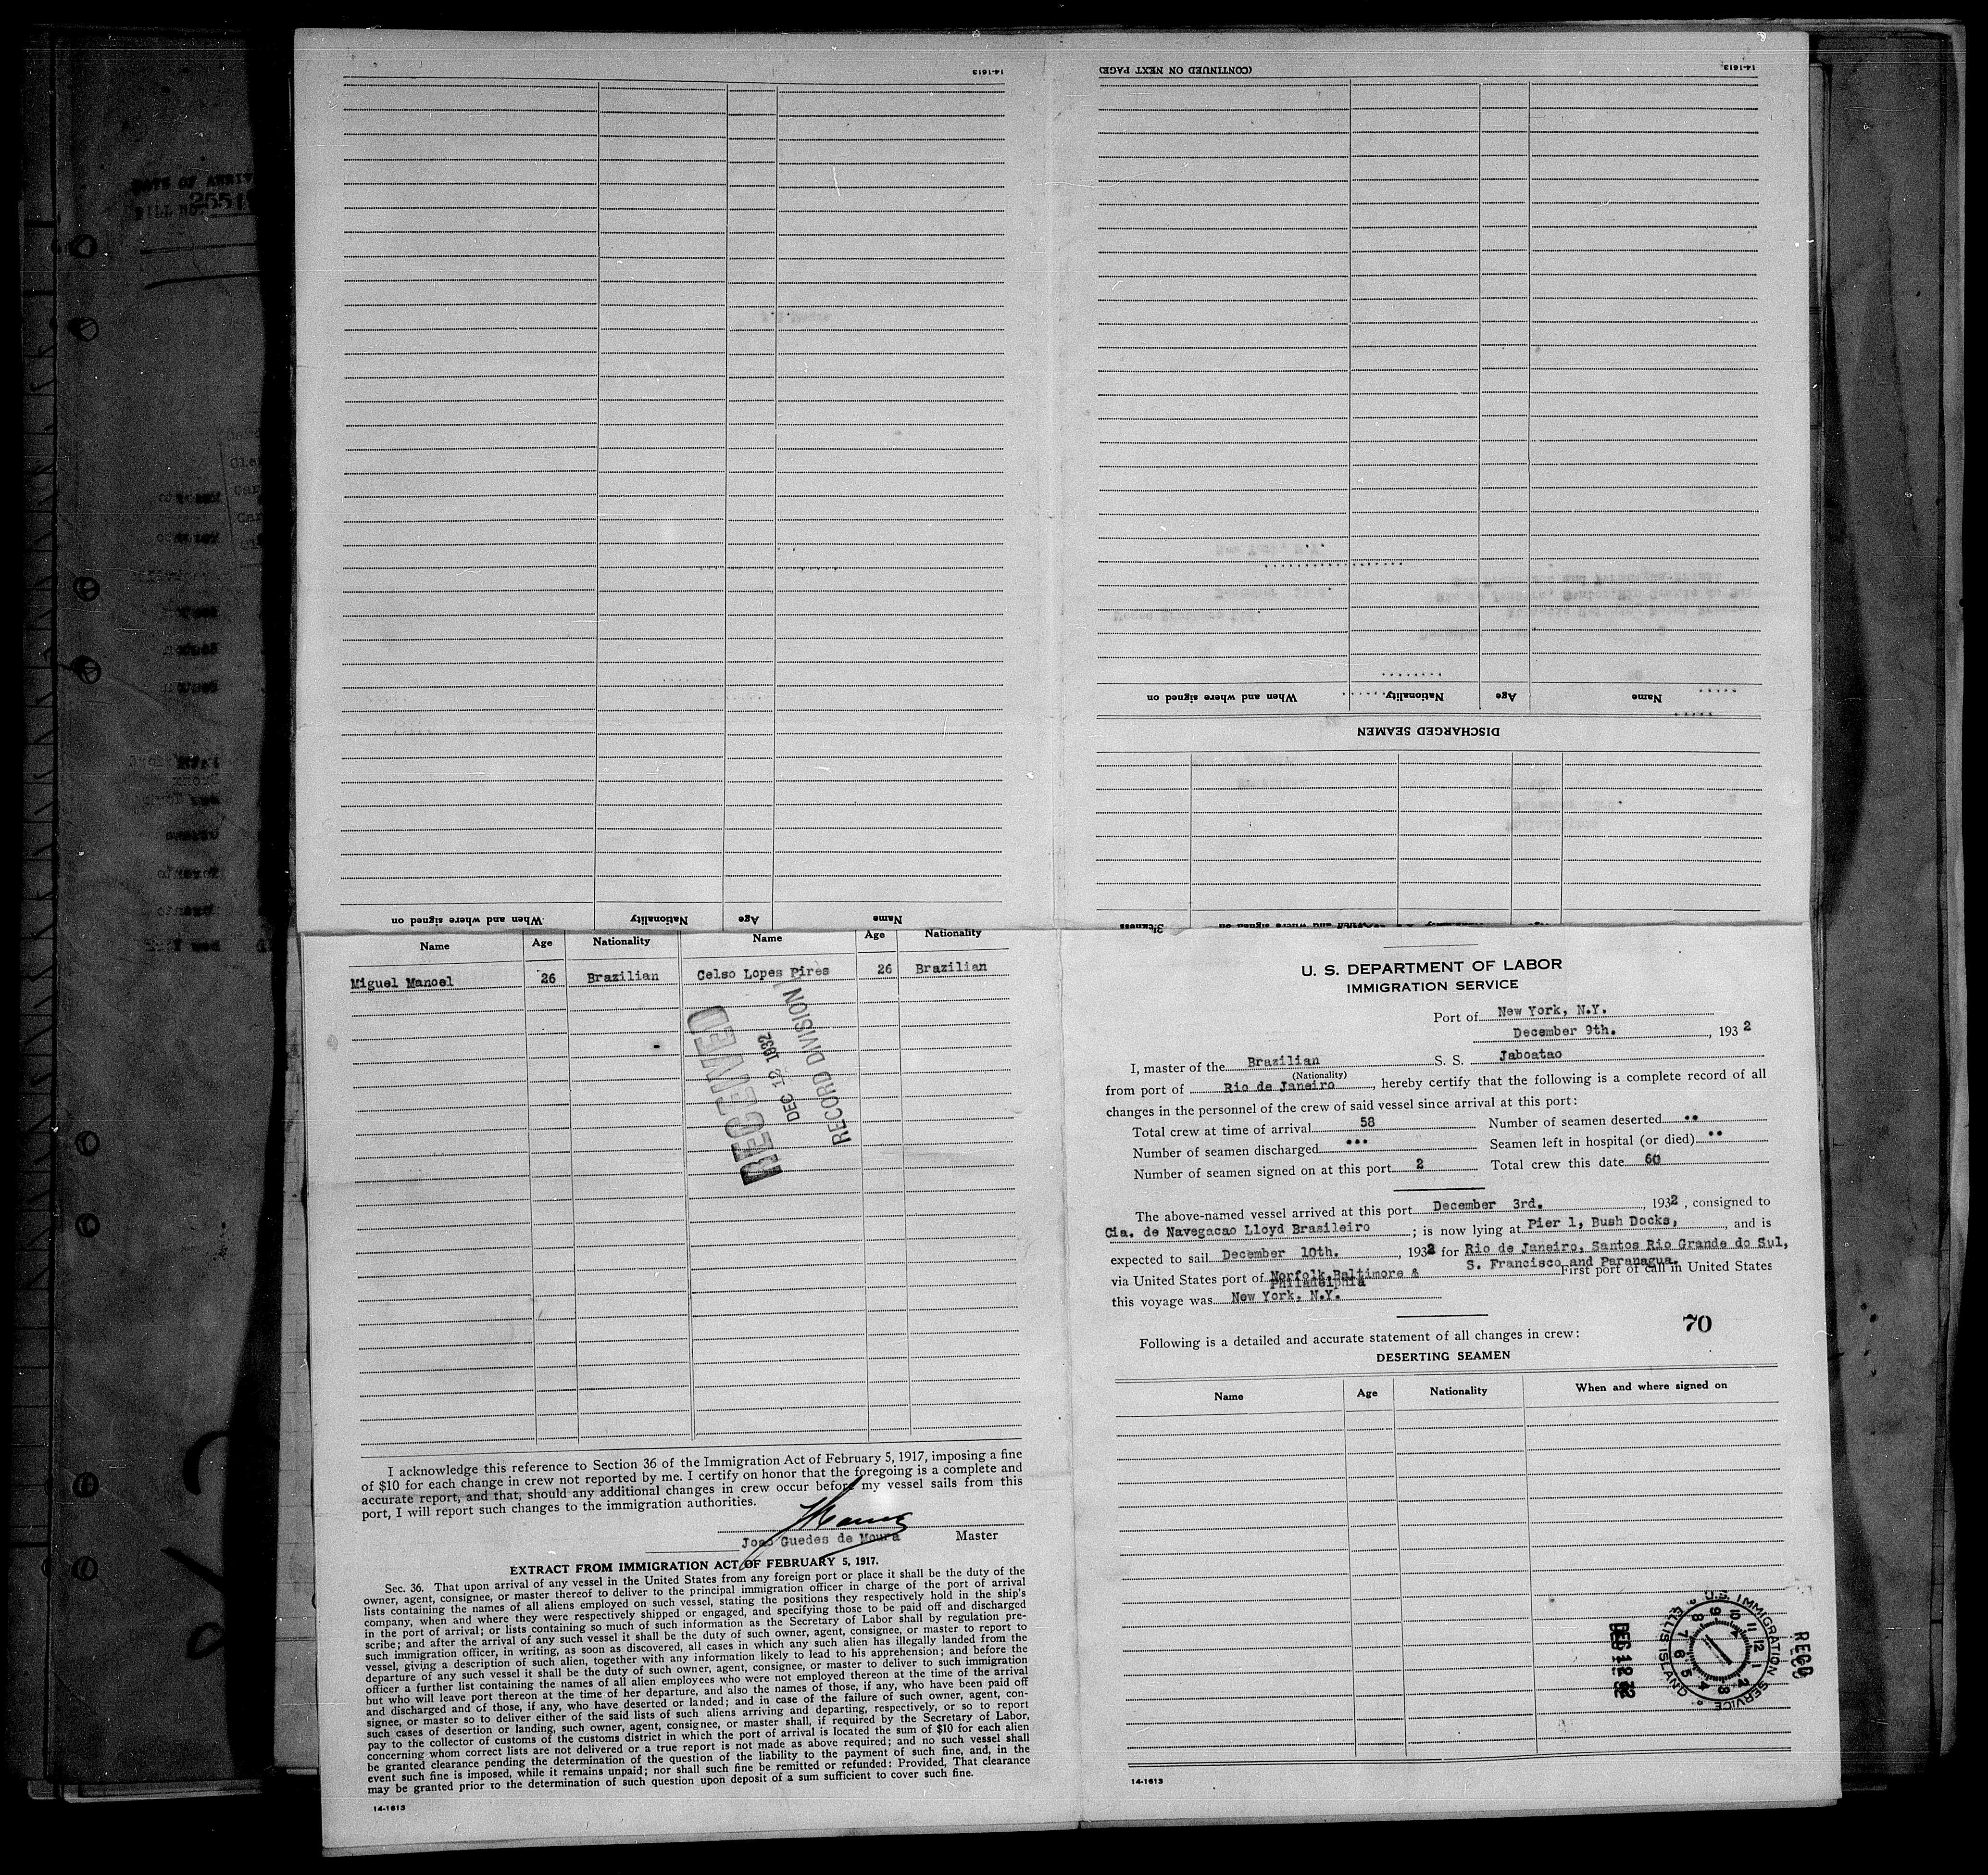 14-1613
When and where signed on Nationality Age Name
(CONTINUED ON NEXT PAGE)
14-1613
When and where signed on Nationality Age Name
DISCHARGED SEAMEN
Sickness
DATE OF
Name Age Nationality Name Age Nationality
Miguel Manoel 26 Brazilian Celso Lopes Pires 26 Brazilian
RECEIVED
DEC 12 1932
RECORD DIVISION
I acknowledge this reference to Section 36 of the Immigration Act of February 5, 1917, imposing a fine
of $10 for each change in crew not reported by me. I certify on honor that the foregoing is a complete and
accurate report, and that, should any additional changes in crew occur before my vessel sails from this
port, I will report such changes to the immigration authorities.
Joao Guedes de Moura Master
EXTRACT FROM IMMIGRATION ACT OF FEBRUARY 5, 1917.
Sec. 36. That upon arrival of any vessel in the United States from any foreign port or place it shall be the duty of the
owner, agent, consignee, or master thereof to deliver to the principal immigration officer in charge of the port of arrival
lists containing the names of all aliens employed on such vessel, stating the positions they respectively hold in the ship's
company, when and where they were respectively shipped or engaged, and specifying those to be paid off and discharged
in the port of arrival; or lists containing so much of such information as the Secretary of Labor shall by regulation pre-
scribe; and after the arrival of any such vessel it shall be the duty of such owner, agent, consignee, or master to report to
such immigration officer, in writing, as soon as discovered, all cases in which any such alien has illegally landed from the
vessel, giving a description of such alien, together with any information likely to lead to his apprehension; and before the
departure of any such vessel it shall be the duty of such owner, agent, consignee, or master to deliver to such immigration
officer a further list containing the names of all alien employees who were not employed thereon at the time of the arrival
but who will leave port thereon at the time of her departure, and also the names of those, if any, who have been paid off
and discharged and of those, if any, who have deserted or landed; and in case of the failure of such owner, agent, con-
signee, or master so to deliver either of the said lists of such aliens arriving and departing, respectively, or so to report
such cases of desertion or landing, such owner, agent, consignee, or master shall, if required by the Secretary of Labor,
pay to the collector of customs of the customs district in which the port of arrival is located the sum of $10 for each alien
concerning whom correct lists are not delivered or a true report is not made as above required; and no such vessel shall
be granted clearance pending the determination of the question of the liability to the payment of such fine, and, in the
event such fine is imposed, while it remains unpaid; nor shall such fine be remitted or refunded: Provided, That clearance
may be granted prior to the determination of such question upon deposit of a sum sufficient to cover such fine.
14-1613
U. S. DEPARTMENT OF LABOR
IMMIGRATION SERVICE
Port of New York, N.Y.
December 9th., 1932
I, master of the Brazilian S. S. Jaboatao
(Nationality)
from port of Rio de Janeiro, hereby certify that the following is a complete record of all
changes in the personnel of the crew of said vessel since arrival at this port:
Total crew at time of arrival 58 Number of seamen deserted
Number of seamen discharged Seamen left in hospital (or died)
Number of seamen signed on at this port 2 Total crew this date 60
The above-named vessel arrived at this port December 3rd., 1932, consigned to
Cia. de Navegacao Lloyd Brasileiro; is now lying at Pier 1, Bush Docks, and is
expected to sail December 10th., 1932 for Rio de Janeiro, Santos Rio Grande do Sul,
S. Francisco and Paranagua.
via United States port of Norfolk, Baltimore & First port of call in United States
Philadelphia
this voyage was New York, N.Y.
70
Following is a detailed and accurate statement of all changes in crew:
DESERTING SEAMEN
Name Age Nationality When and where signed on
DEC 12 32
U.S. IMMIGRATION SERVICE ELLIS ISLAND
RECD
14-1613